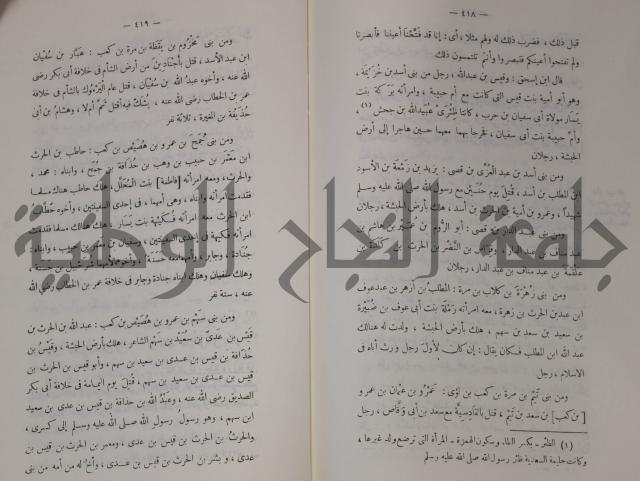 — ٤١٨ —
قبل ذلك ، فضرب ذلك له ولهم مثلا ، أى : إنا قد فتحنا أعيننا فأبصرنا
ولم تفتحوا أعينكم فتبصروا وأنتم تلتمسون ذلك
قال ابن إسحق : وقيس بن عبد الله ، رجل من بنى أسد بن خزيمة ،
وهو أبو أمية بنت قيس التى كانت مع أم حبيبة ، وامرأته بركة بنت
يسار مولاة أبى سفيان بن حرب ، كانتا ظئرى عبيد الله بن جحش (١) ،
وأم حبيبة بنت أبى سفيان ، فخرجا بهما معهما حين هاجرا إلى أرض
الحبشة ، رجلان
ومن بنى أسد بن عبد العزى بن قصى : يزيد بن زمعة بن الأسود
ابن المطلب بن أسد ، قتل يوم حنين مع رسول الله صلى الله عليه وسلم
شهيدا ، وعمرو بن أمية بن الحرث بن أسد ، هلك بأرض الحبشة ، رجلان
ومن بنى عبد الدار بن قصى : أبو الروم بن عمير بن هاشم بن
عبد مناف بن عبد الدار ، وفراس بن النضر بن الحرث بن كلدة بن
علقمة بن عبد مناف بن عبد الدار ، رجلان
ومن بنى زهرة بن كلاب بن مرة : المطلب بن أزهر بن عبد عوف
ابن عبد بن الحرث بن زهرة ، معه امرأته رملة بنت أبى عوف بن ضبيرة
بن سعيد بن سعد بن سهم ، هلك بأرض الحبشة ، ولدت له هنالك
عبد الله ابن المطلب فكان يقال : إن كان لأول رجل ورث أباه فى
الاسلام ، رجل
ومن بنى تيم بن مرة بن كعب بن لؤى : عمرو بن عثمان بن عمرو
[بن كعب] بن سعد بن تيم ، قتل بالقادسية مع سعد بن أبى وقاص ، رجل
(١) الظئر ـ بكسر الظاء وسكون الهمزة ـ المرأة التى ترضع ولد غيرها ،
وكانت حليمة السعدية ظئر رسول الله صلى الله عليه وسلم
— ٤١٩ —
ومن بنى مخزوم بن يقظة بن مرة بن كعب : هبار بن سفيان
ابن عبد الأسد ، قتل بأجنادين من أرض الشأم فى خلافة أبى بكر رضى
الله عنه ، وأخوه عبد الله بن سفيان ، قتل عام اليرموك بالشأم فى خلافة
عمر بن الخطاب رضى الله عنه ، يشك فيه أقتل ثم أم لا ، وهشام بن أبى
حذيفة بن المغيرة ، ثلاثة نفر
ومن بنى جمح بن عمرو بن هصيص بن كعب : حاطب بن الحرث
ابن معمر بن حبيب بن وهب بن حذافة بن جمح ، وابناه : محمد ،
والحرث ، ومعه امرأته [فاطمة] بنت المجلل، هلك حاطب هنالك مسلما
فقدمت امرأته وابناه ، وهى أمهما ، فى إحدى السفينتين ، وأخوه حطاب
ابن الحرث ، معه امرأته فكيهة بنت يسار ، هلك هنالك مسلما فقدمت
امرأته فكيهة فى إحدى السفينتين ، وسفيان بن معمر بن حبيب ، وابناه :
جنادة ، وجابر ، وأمهما معه حسنة ، وأخوهما لأمهما شرحبيل بن حسنة ،
وهلك سفيان وهلك ابناه جنادة وجابر فى خلافة عمر بن الخطاب رضى الله
عنه ، ستة نفر
ومن بنى سهم بن عمرو بن هصيص بن كعب : عبد الله بن الحرث بن
قيس بن عدى بن سعيد بن سهم الشاعر ، هلك بأرض الحبشة ، وقيس بن
حذافة بن قيس بن عدى بن سعيد بن سهم ، وأبو قيس بن الحرث بن
قيس بن عدى بن سعيد بن سهم ، قتل يوم اليمامة فى خلافة أبى بكر
الصديق رضى الله عنه ، وعبد الله بن حذافة بن قيس بن عدى بن سعيد
ابن سهم ، وهو رسول رسول الله صلى الله عليه وسلم إلى كسرى ،
والحرث بن الحرث بن قيس بن عدى ، ومعمر بن الحرث بن قيس بن
عدى ، وبشر بن الحرث بن قيس بن عدى ، وأخ له من أمه من بنى
جامعة النجاح الوطنية